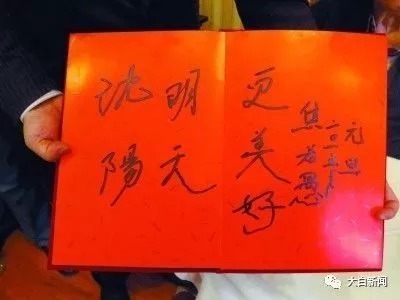 沈陽
明天
更美好
焦若愚
二〇一五年
元旦
大白新闻